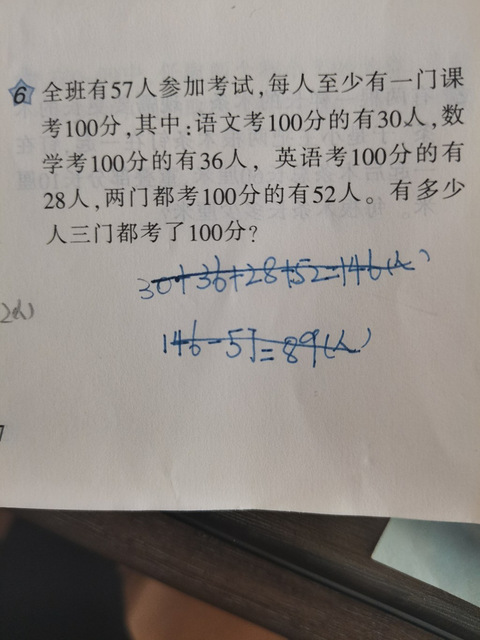 6 全班有57人参加考试,每人至少有一门课
考100分,其中:语文考100分的有30人,数
学考100分的有36人, 英语考100分的有
28人,两门都考100分的有52人。有多少
人三门都考了100分?
30+36+28+52=146(人)
2(人)
146-57=89(人)
7